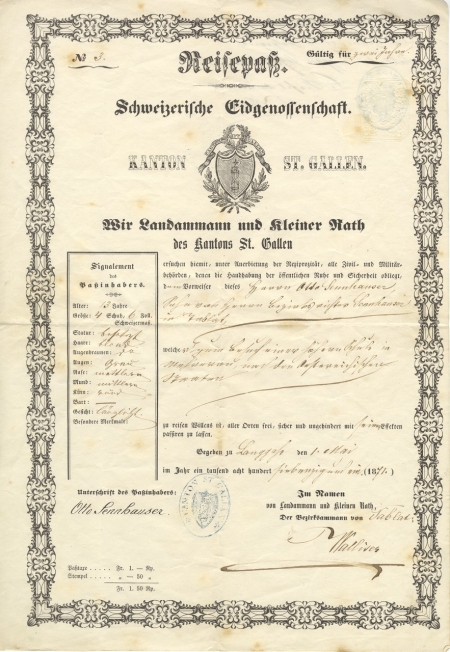 Nº 3.
Gültig für zwei Jahre.
Reisepaß.
Schweizerische Eidgenossenschaft.
KANTON ST. GALLEN.
Wir Landammann und Kleiner Rath
des Kantons St. Gallen
Signalement
des
Paßinhabers.
Alter: Jahre
Größe: 4 Schuh, 6 Zoll,
Schweizermaß.
Statur:
Haare:
Augenbraunen:
Augen: Grau
Nase: mittlere
Mund: mittlere
Kinn: rund
Bart: —
Gesicht: länglicht
Besondere Merkmale:
ersuchen hiemit, unter Anerbietung der Reziprozität, alle Civil- und Militär-
behörden, denen die Handhabung der öffentlichen Ruhe und Sicherheit obliegt,
dem Vorweiser dieses Herrn Otto Sennhauser
Sohn von Herrn Sennhauser
in Tablat
welcher zum Besuch einer
in nach den Österreichischen
Staaten
zu reisen Willens ist, aller Orten frei, sicher und ungehindert mit seinen Effekten
passiren zu lassen.
Gegeben zu den 1. Mai
im Jahr ein tausend acht hundert siebenzig und ein (1871.)
Unterschrift des Paßinhabers:
Otto Sennhauser.
Im Namen
von Landammann und Kleinen Rath,
Der Bezirksammann von Tablat.
Paßtaxe . . . . . Fr. 1. — Rp.
Stempel . . . . . „ — 50 „
Fr. 1. 50 Rp.